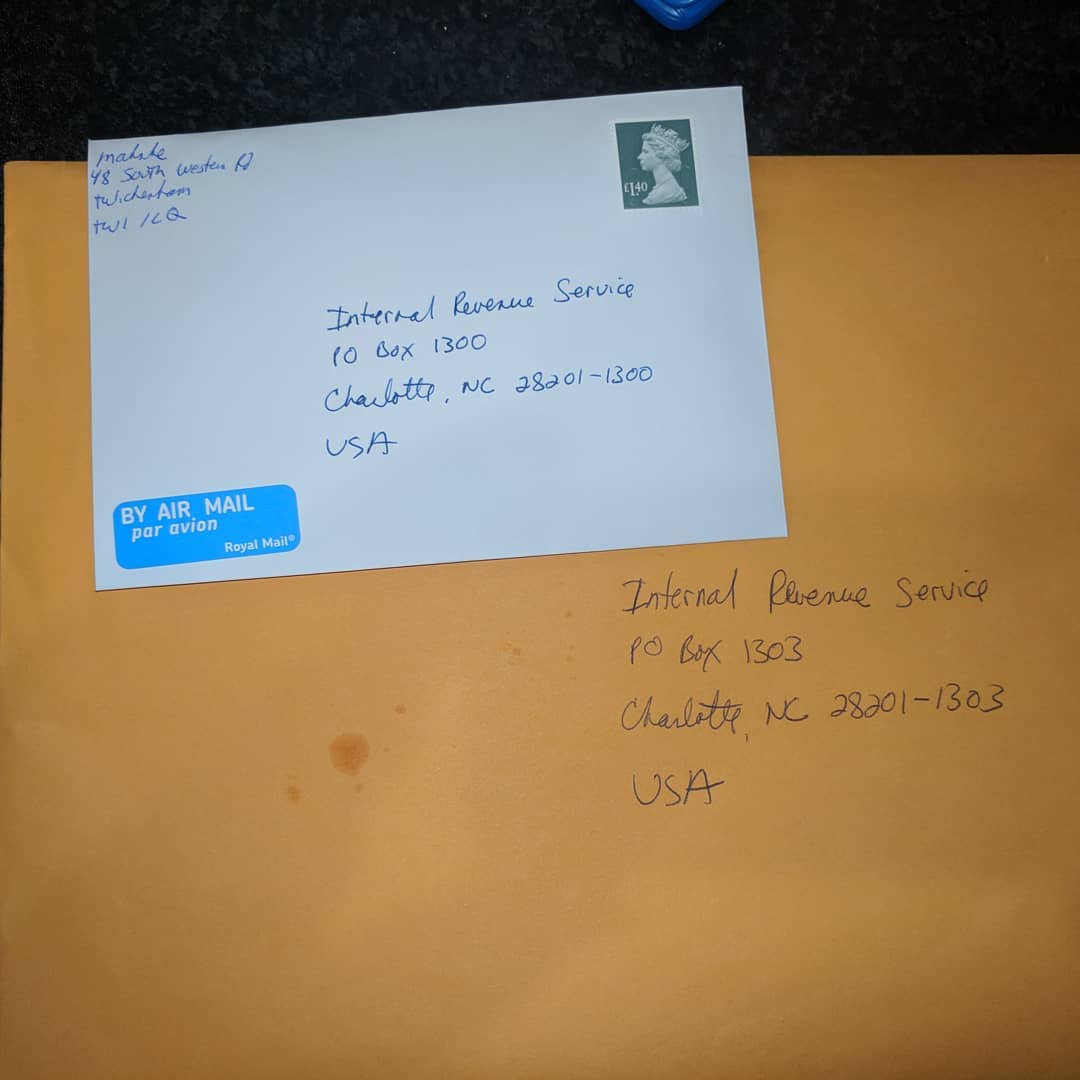 48 South Western Rd
twickenham
tw1 1LQ
£1.40
Internal Revenue Service
PO Box 1300
Charlotte, NC 28201-1300
USA
BY AIR MAIL
par avion
Royal Mail®
Internal Revenue Service
PO Box 1303
Charlotte, NC 28201-1303
USA